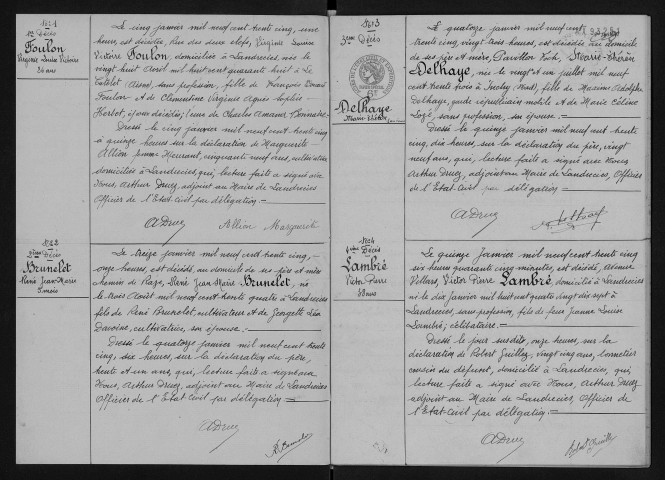 1er Décès
Foulon
Virginie Louise Victoire
86 ans
Le cinq janvier mil neuf cent trente cinq, une
heure, est décédée, Rue des deux clefs, Virginie Louise
Victoire Foulon, domiciliée à Landrecies, née le
vingt huit Août mil huit cent quarante huit à Le
Catelet (Aisne) sans profession, fille de François
Foulon et de Clémentine Virginie Agnès Sophie
Herbot, époux décédés; veuve de Charles Amand
Dressé le cinq janvier mil neuf cent trente cinq
à quinze heures sur la déclaration de Marguerite
Allion femme cinquante neuf ans,
domiciliée à Landrecies, qui, lecture faite a signé avec
Nous, Arthur Druez, adjoint au Maire de Landrecies
Officier de l'Etat Civil par délégation
ADruez Allion Marguerite
2ème Décès
Brunelet
René Jean-Marie
5 mois
Le treize janvier mil neuf cent trente cinq,
onze heures, est décédé, au domicile de ses père et mère
chemin de René Jean Marie Brunelet, né
le trois Août mil neuf cent trente quatre à Landrecies
fils de René Brunelet, cultivateur et de Georgette
cultivatrice, son épouse.
Dressé le quatorze janvier mil neuf cent trente
cinq, dix heures, sur la déclaration du père,
trente et un ans, qui, lecture faite a signé avec
Nous, Arthur Druez, adjoint au Maire de Landrecies
Officier de l'Etat Civil par délégation
ADruez
3ème Décès
Delhaye
Le quatorze janvier mil neuf cent
trente cinq, vingt trois heures, est décédée au domicile
de ses père et mère, Pavillon Marie-Thérèse
Delhaye, née le vingt et un juillet mil neuf
cent trente trois à Inchy (Nord), fille de Maxime Adolphe
Delhaye, garde républicaine mobile et de Marie Céline
sans profession, son épouse.
Dressé le quinze janvier mil neuf cent trente
cinq, dix heures, sur la déclaration du père, vingt
neuf ans, qui, lecture faite a signé avec Nous
Arthur Druez adjoint au Maire de Landrecies, Officier
de l'Etat Civil par délégation
ADruez
4ème Décès
Lambré
Victor Pierre
Le quinze Janvier mil neuf cent trente cinq
six heures quarante cinq minutes, est décédé, avenue
Villars, Victor Pierre Lambré, domicilié à Landrecies
né le dix janvier mil huit cent quatre vingt dix sept à
Landrecies, sans profession, fils de feue Jeanne Louise
Lambré; célibataire.
Dressé le jour susdit, onze heures, sur la
déclaration de Robert vingt cinq ans,
cousin du défunt, domicilié à Landrecies, qui,
lecture faite a signé avec Nous, Arthur Druez
adjoint au Maire de Landrecies, Officier de
l'Etat Civil par délégation
ADruez